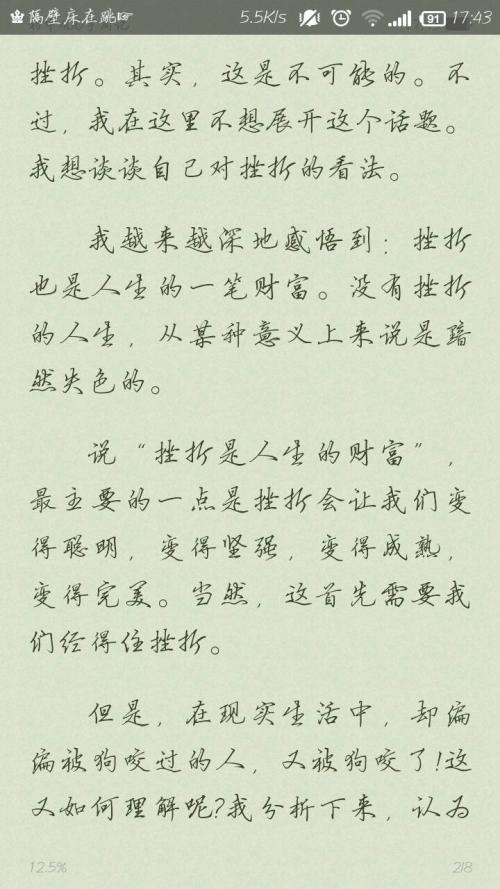 隔壁床在跳 5.5K/s 91 17:43
挫折。其实，这是不可能的。不
过，我在这里不想展开这个话题。
我想谈谈自己对挫折的看法。
我越来越深地感悟到：挫折
也是人生的一笔财富。没有挫折
的人生，从某种意义上来说是黯
然失色的。
说“挫折是人生的财富”，
最主要的一点是挫折会让我们变
得聪明，变得坚强，变得成熟，
变得完美。当然，这首先需要我
们经得住挫折。
但是，在现实生活中，却偏
偏被狗咬过的人，又被狗咬了!这
又如何理解呢?我分析下来，认为
12.5% 2/8